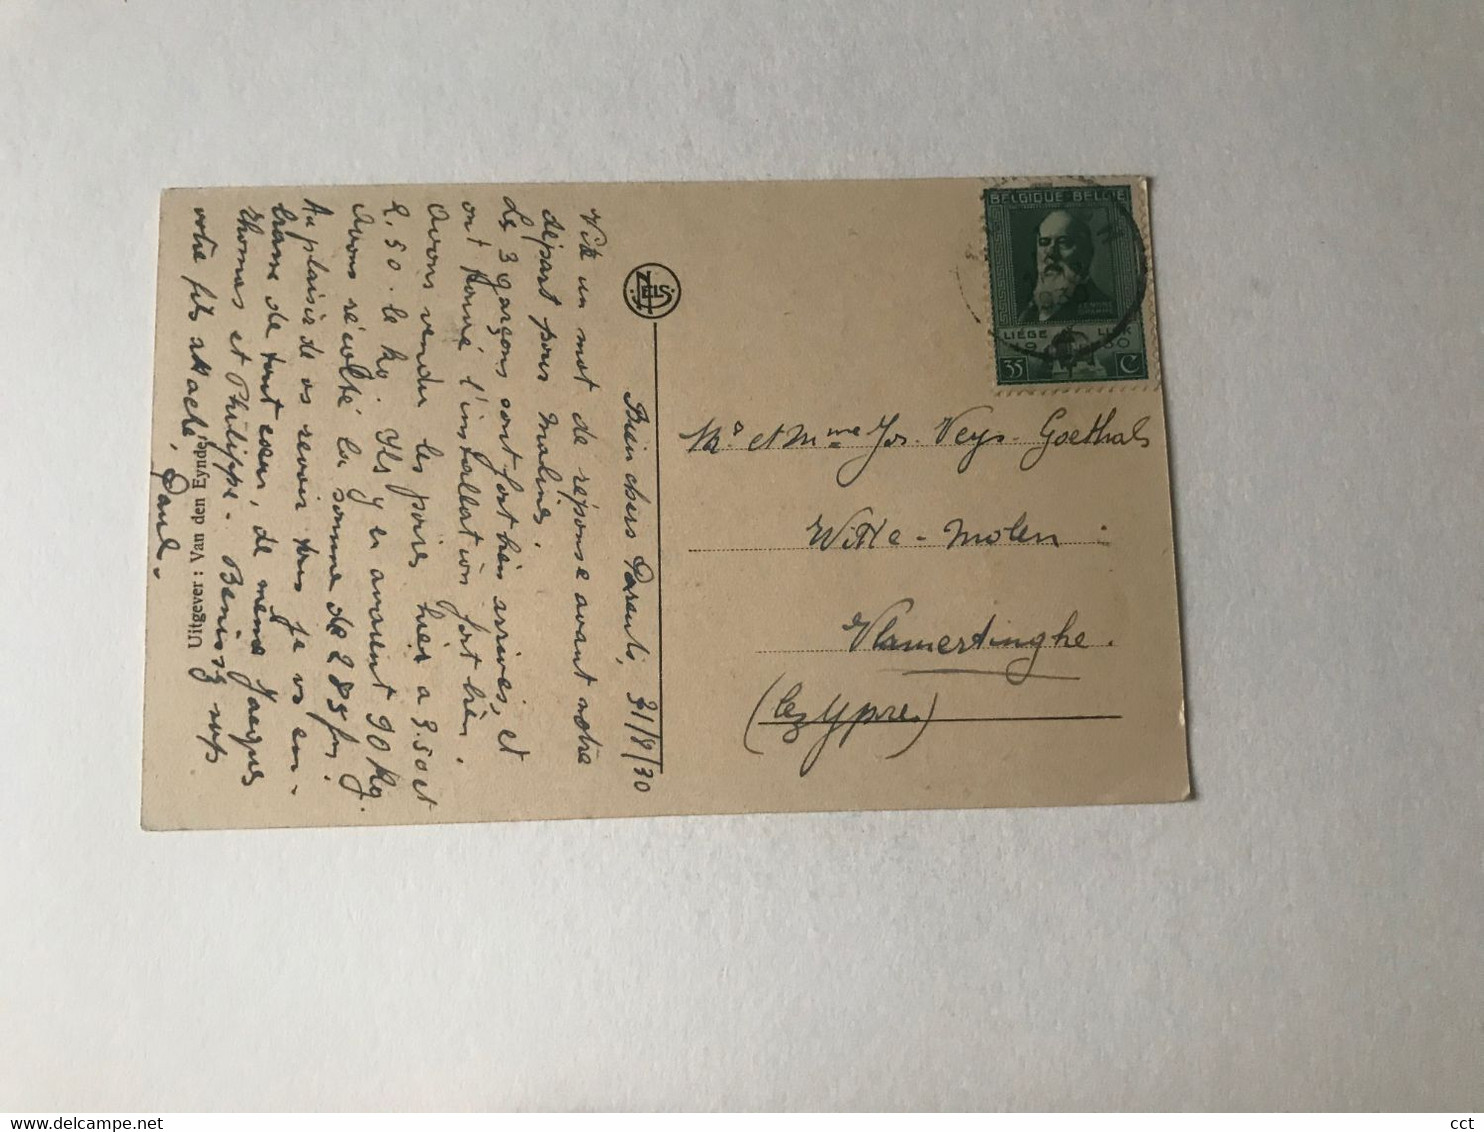 Bien chers Parents, 31/8/30
Vite un mot de réponse avant notre
départ pour Malines.
Les 3 garçons sont fort bien arrivés, et
ont trouvé l'installation fort bien.
Avons vendu les poires hier a 3.50 et
2.50 le kg. Ils y en avaient 90 kg.
Avons récolté la somme de 285 frs.
Au plaisir de vs revoir tous je vs em-
brasse de tout cœur, de même Jacques
Thomas et Philippe. Bénissez nous
votre fils attaché, Paul.
Uitgever : Van den Eynde,
NELS
BELGIQUE BELGIË
LIÉGE LUIK
1930
35 C
Mr et Mme Jos. Veys-Goethals
Witte-Molen
Vlamertinghe.
(lez Ypres)
cct